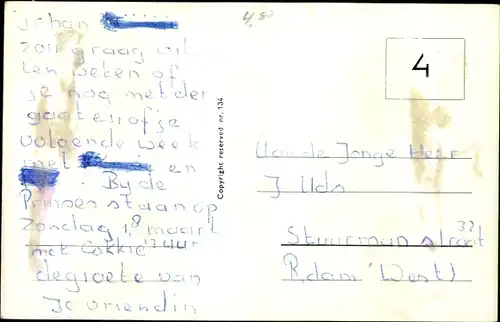 Johan
zou graag wil
ten weten of
je nog met der
gaat en of je
volgende week
met en
By de
Prinses staan op
Zondag 18 maart
met Cokkie 1744r
de groete van
Je vriendin
4,50
Copyright reserved nr. 134
4
Aan de Jonge Heer
J Uds
Stuurman straat
32
R.dam (West)